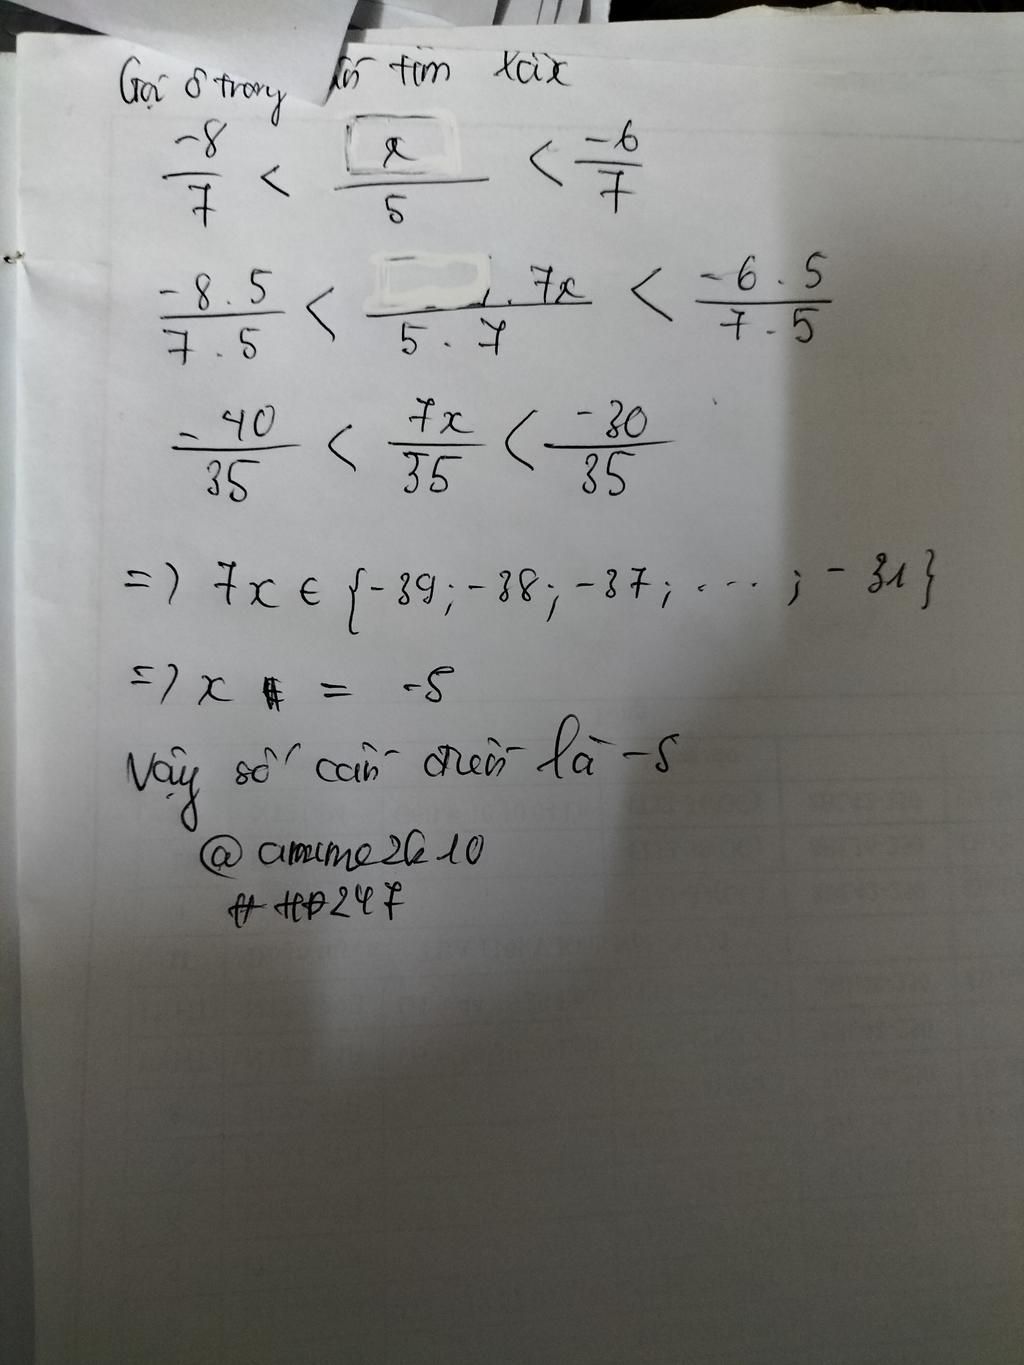 Gọi ô trong cần tìm là x
-8/7 < x/5 < -6/7
-8.5/7.5 < .7x/5.7 < -6.5/7.5
-40/35 < 7x/35 < -30/35
=) 7x ∈ {-39; -38; -37; ....; -31}
=) x = -5
Vậy số cần điền là -5